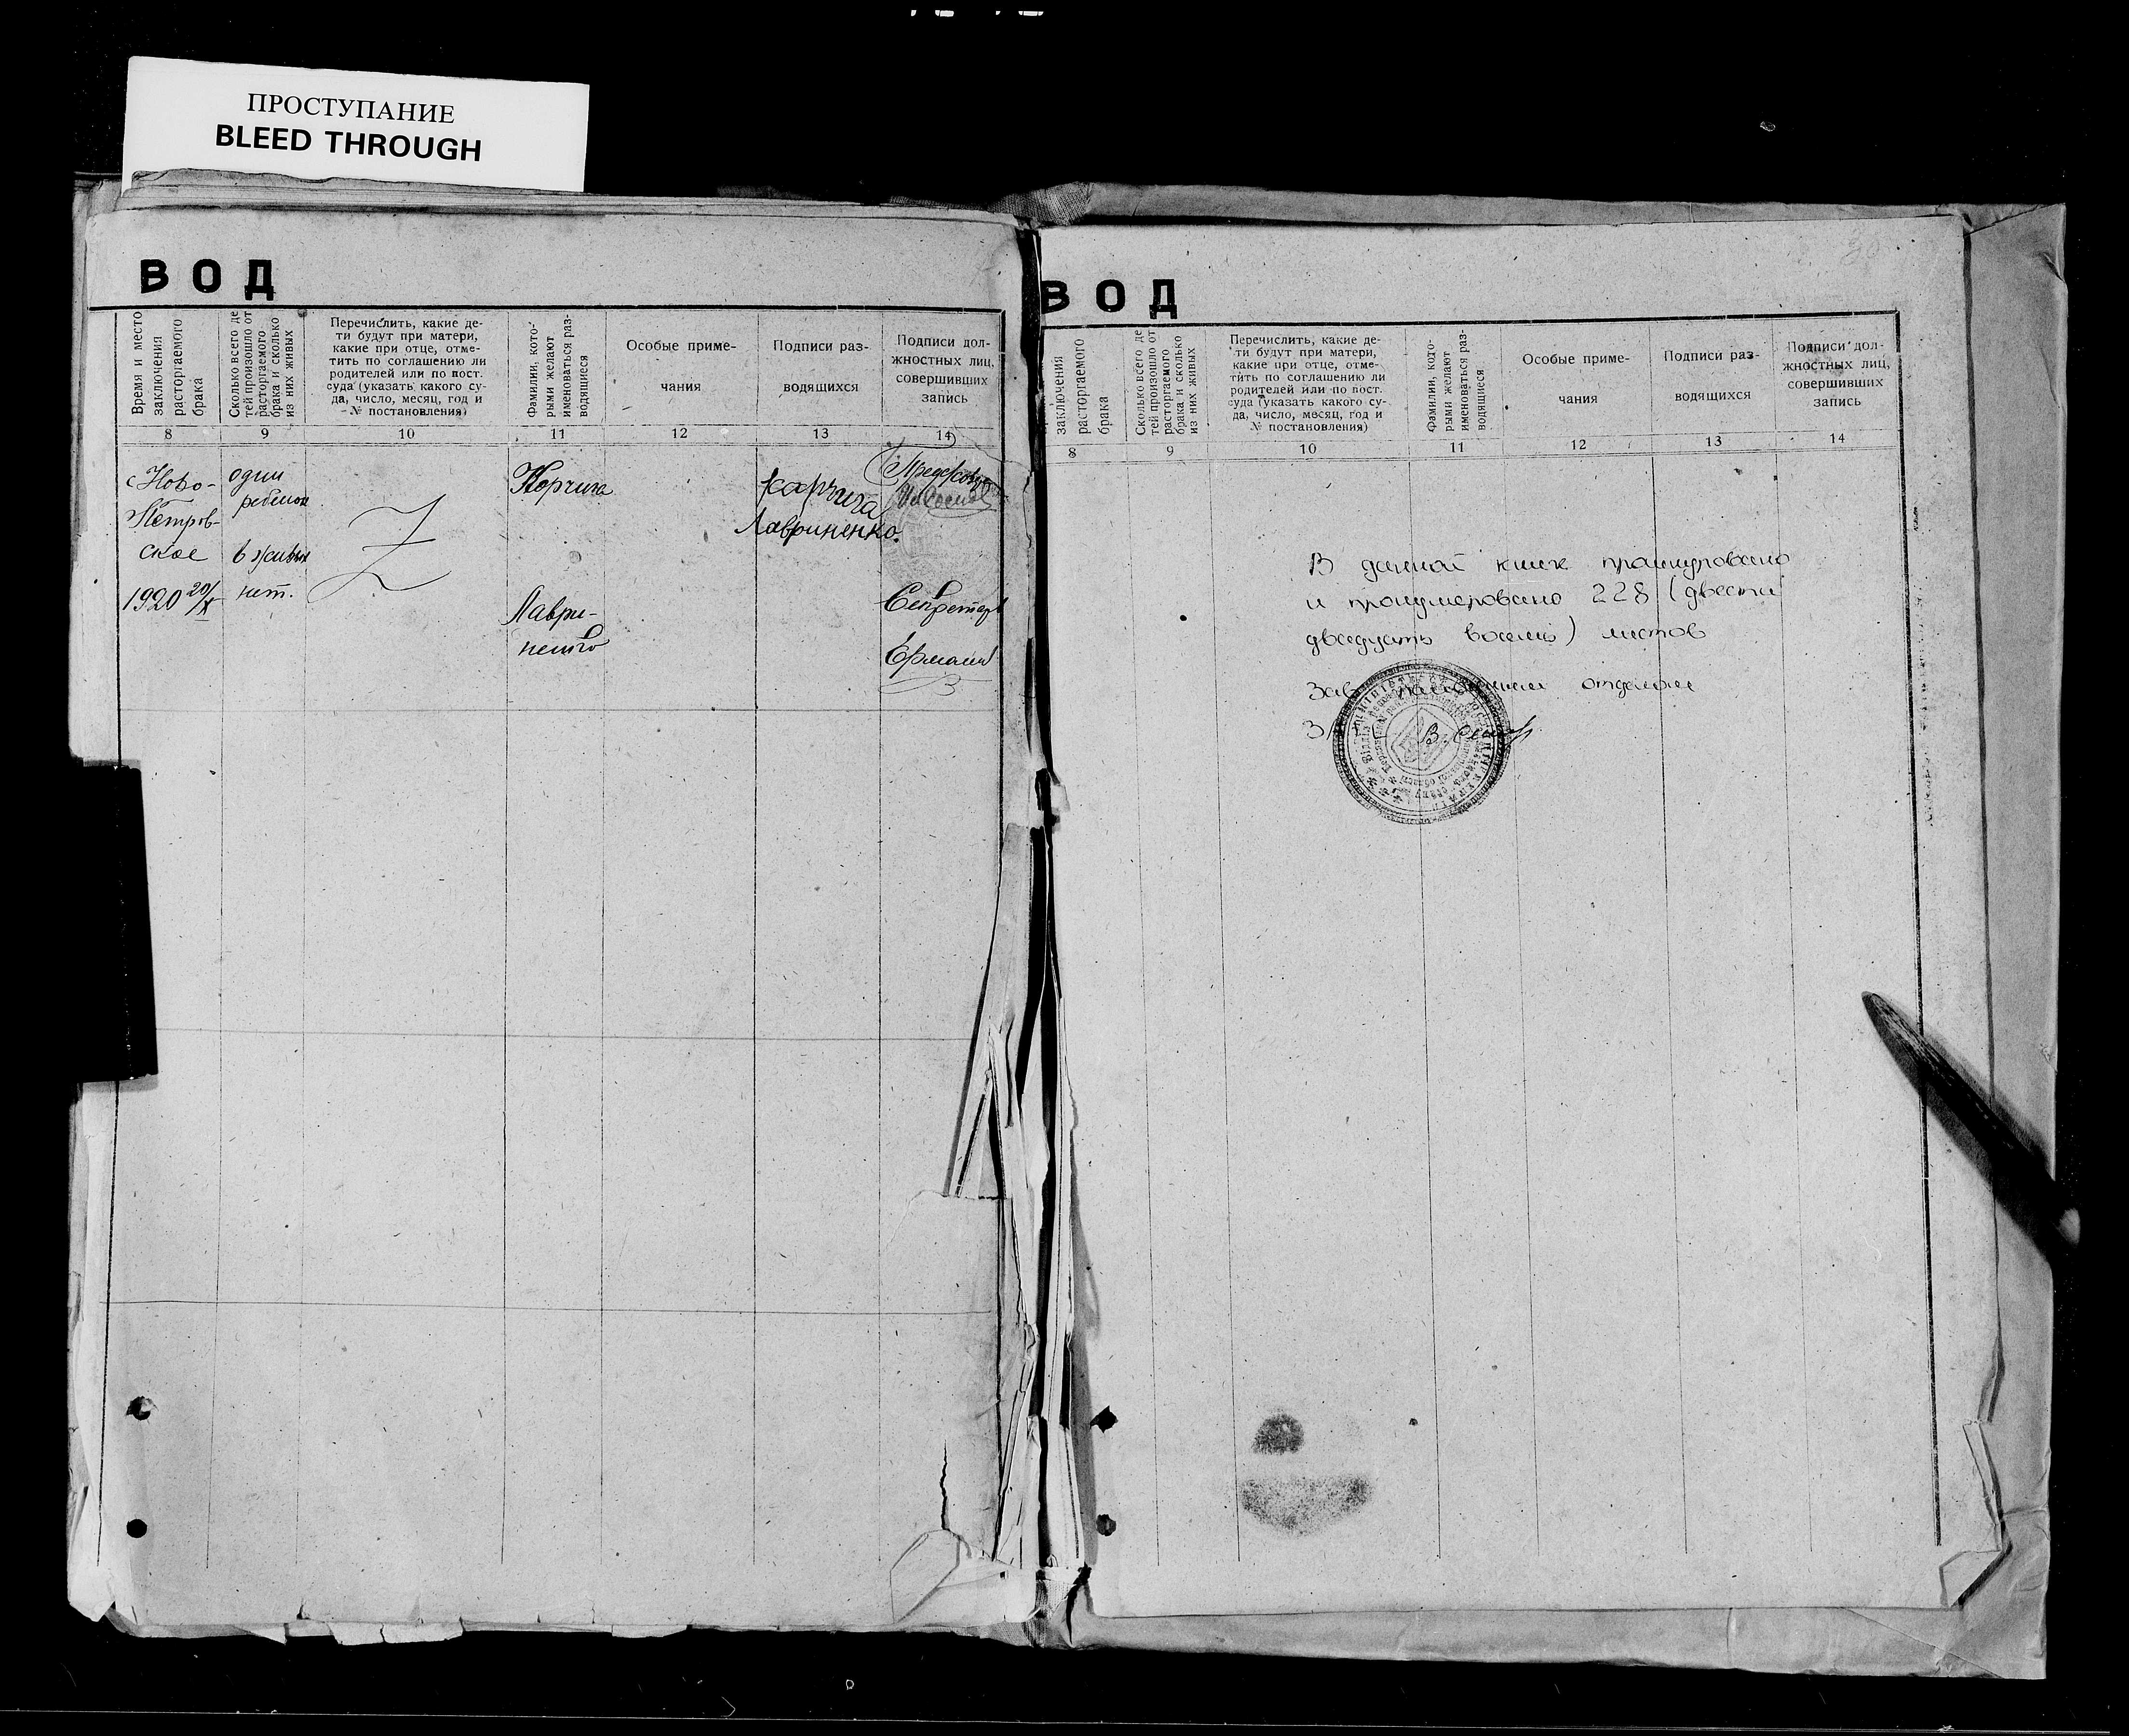 ПРОСТУПАНИЕ
BLEED THROUGH
ВОД
Время и место
заключения
расторгаемого
брака
Сколько всего де
тей произошло от
расторгаемого
брака и сколько
из них живых
Перечислить, какие де-
ти будут при матери,
какие при отце, отме-
тить по соглашению ли
родителей или по пост.
суда (указать какого су-
да, число, месяц, год и
№ постановления)
Фамилии, кото-
рыми желают
именоваться раз-
водящиеся
Особые приме-
чания
Подписи раз-
водящихся
Подписи дол-
жностных лиц,
совершивших
запись
8 9 10 11 12 13 14
Ново-
Петров-
ское
1920 20/X
один
ребенок
в живых
нет.
Корчига
Лаври-
ненко
Корчига
Лавриненко.
Секретарь
ВОД
заключения
расторгаемого
брака
Сколько всего де
тей произошло от
расторгаемого
брака и сколько
из них живых
Перечислить, какие де-
ти будут при матери,
какие при отце, отме-
тить по соглашению ли
родителей или по пост.
суда (указать какого су-
да, число, месяц, год и
№ постановления)
Фамилии, кото-
рыми желают
именоваться раз-
водящиеся
Особые приме-
чания
Подписи раз-
водящихся
Подписи дол-
жностных лиц,
совершивших
запись
8 9 10 11 12 13 14
В данной книге прошнуровано
и пронумеровано 228 (двести
двадцать восемь) листов
Зав отделом